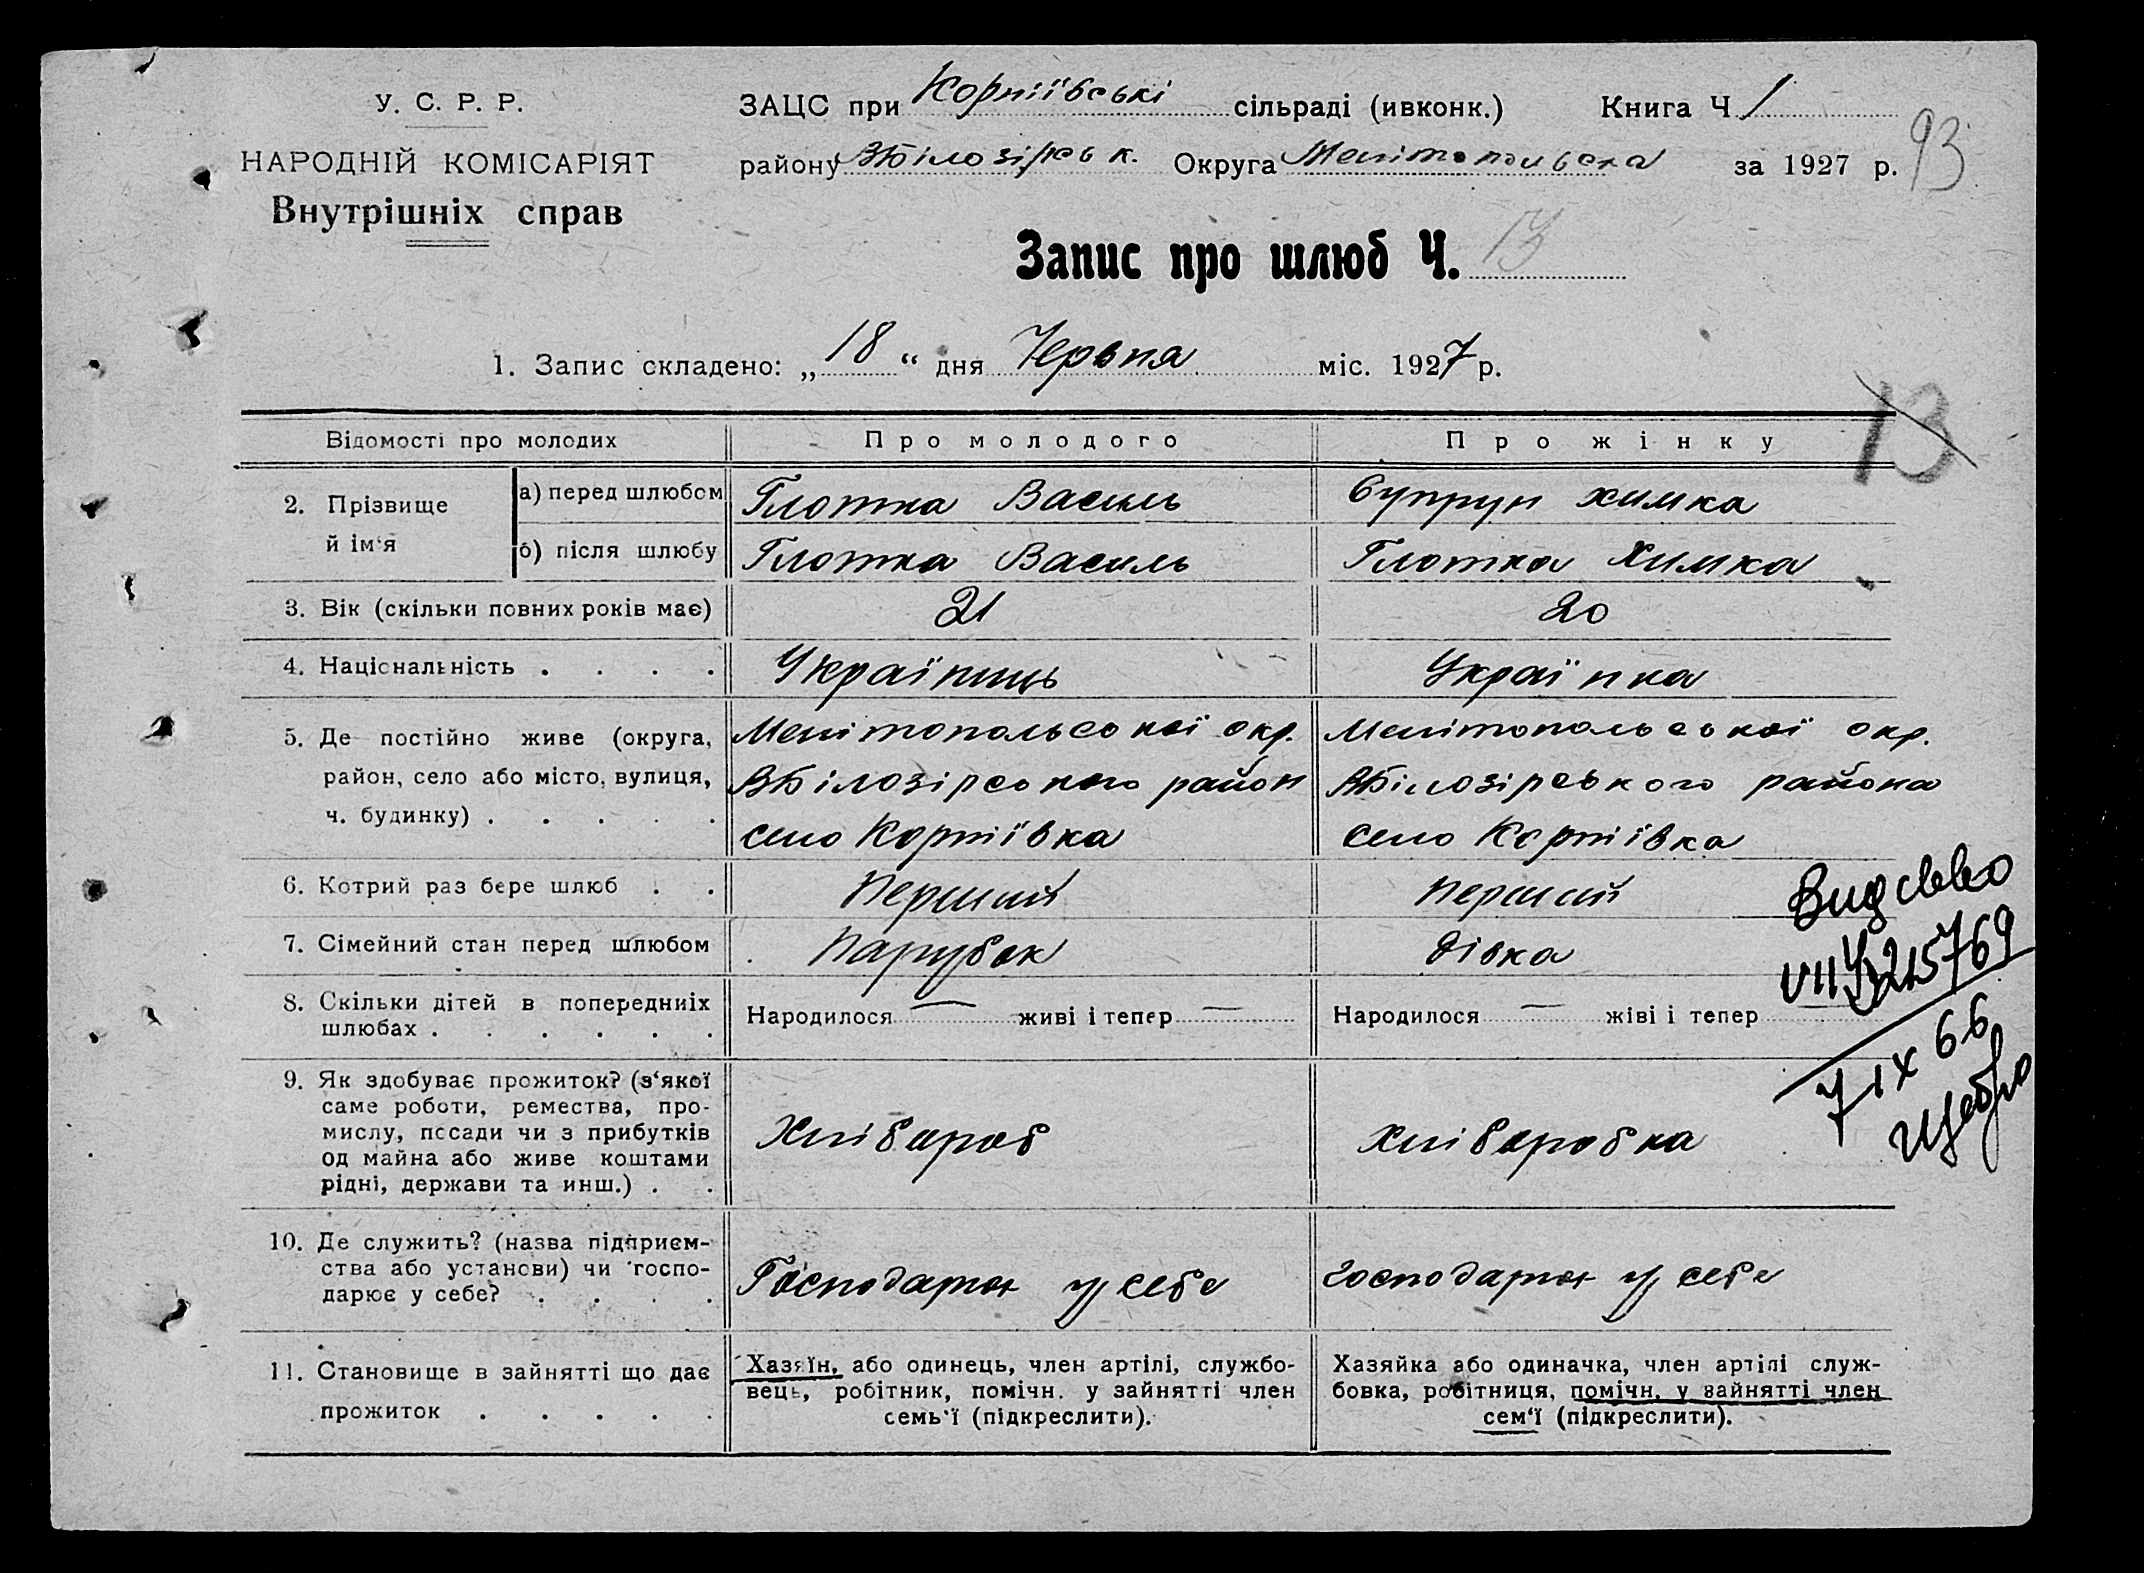 У. С. Р. Р.
НАРОДНІЙ КОМІСАРІЯТ
Внутрішніх справ
ЗАЦС при Корніївські сільраді (ивконк.) Книга Ч 1
району ВБілозірськ. Округа Мелітопольська за 1927 р.
93
Запис про шлюб Ч. 13
1. Запис складено: „ 18 “ дня Червня міс. 1927 р.
13
Відомості про молодих Про молодого Про жінку
2. Прізвище й ім‘я
а) перед шлюбом Глотка Василь Супрун Химка
б) після шлюбу Глотка Василь Глотка Химка
3. Вік (скільки повних років має) 21 20
4. Національність . . . . Українець Українка
5. Де постійно живе (округа, Мелітопольської окр. Мелітопольської окр.
район, село або місто, вулиця, ВБілозірського район ВБілозірського района
ч. будинку) . . . . . село Корніївка село Корніївка
6. Котрий раз бере шлюб . . Перший Перший
7. Сімейний стан перед шлюбом Парубок дівка
8. Скільки дітей в попередниіх Народилося — живі і тепер — Народилося — жіві і тепер —
шлюбах . . . . . .
9. Як здобуває прожиток? (з‘якої
саме роботи, ремества, про-
мислу, посади чи з прибутків Хлібороб Хлібаробка
од майна або живе коштами
рідні, держави та инш.) . .
10. Де служить? (назва підприєм-
ства або установи) чи госпо- Господарює у себе господарює у себе
дарює у себе? . . . .
11. Становище в зайнятті що дає Хазяїн, або одинець, член артілі, службо- Хазяйка або одиначка, член артілі служ-
прожиток . . . . . вець, робітник, помічн. у зайнятті член бовка, робітниця, помічн. у зайнятті член
семь'ї (підкреслити). сем‘ї (підкреслити).
215769
7 IX 66